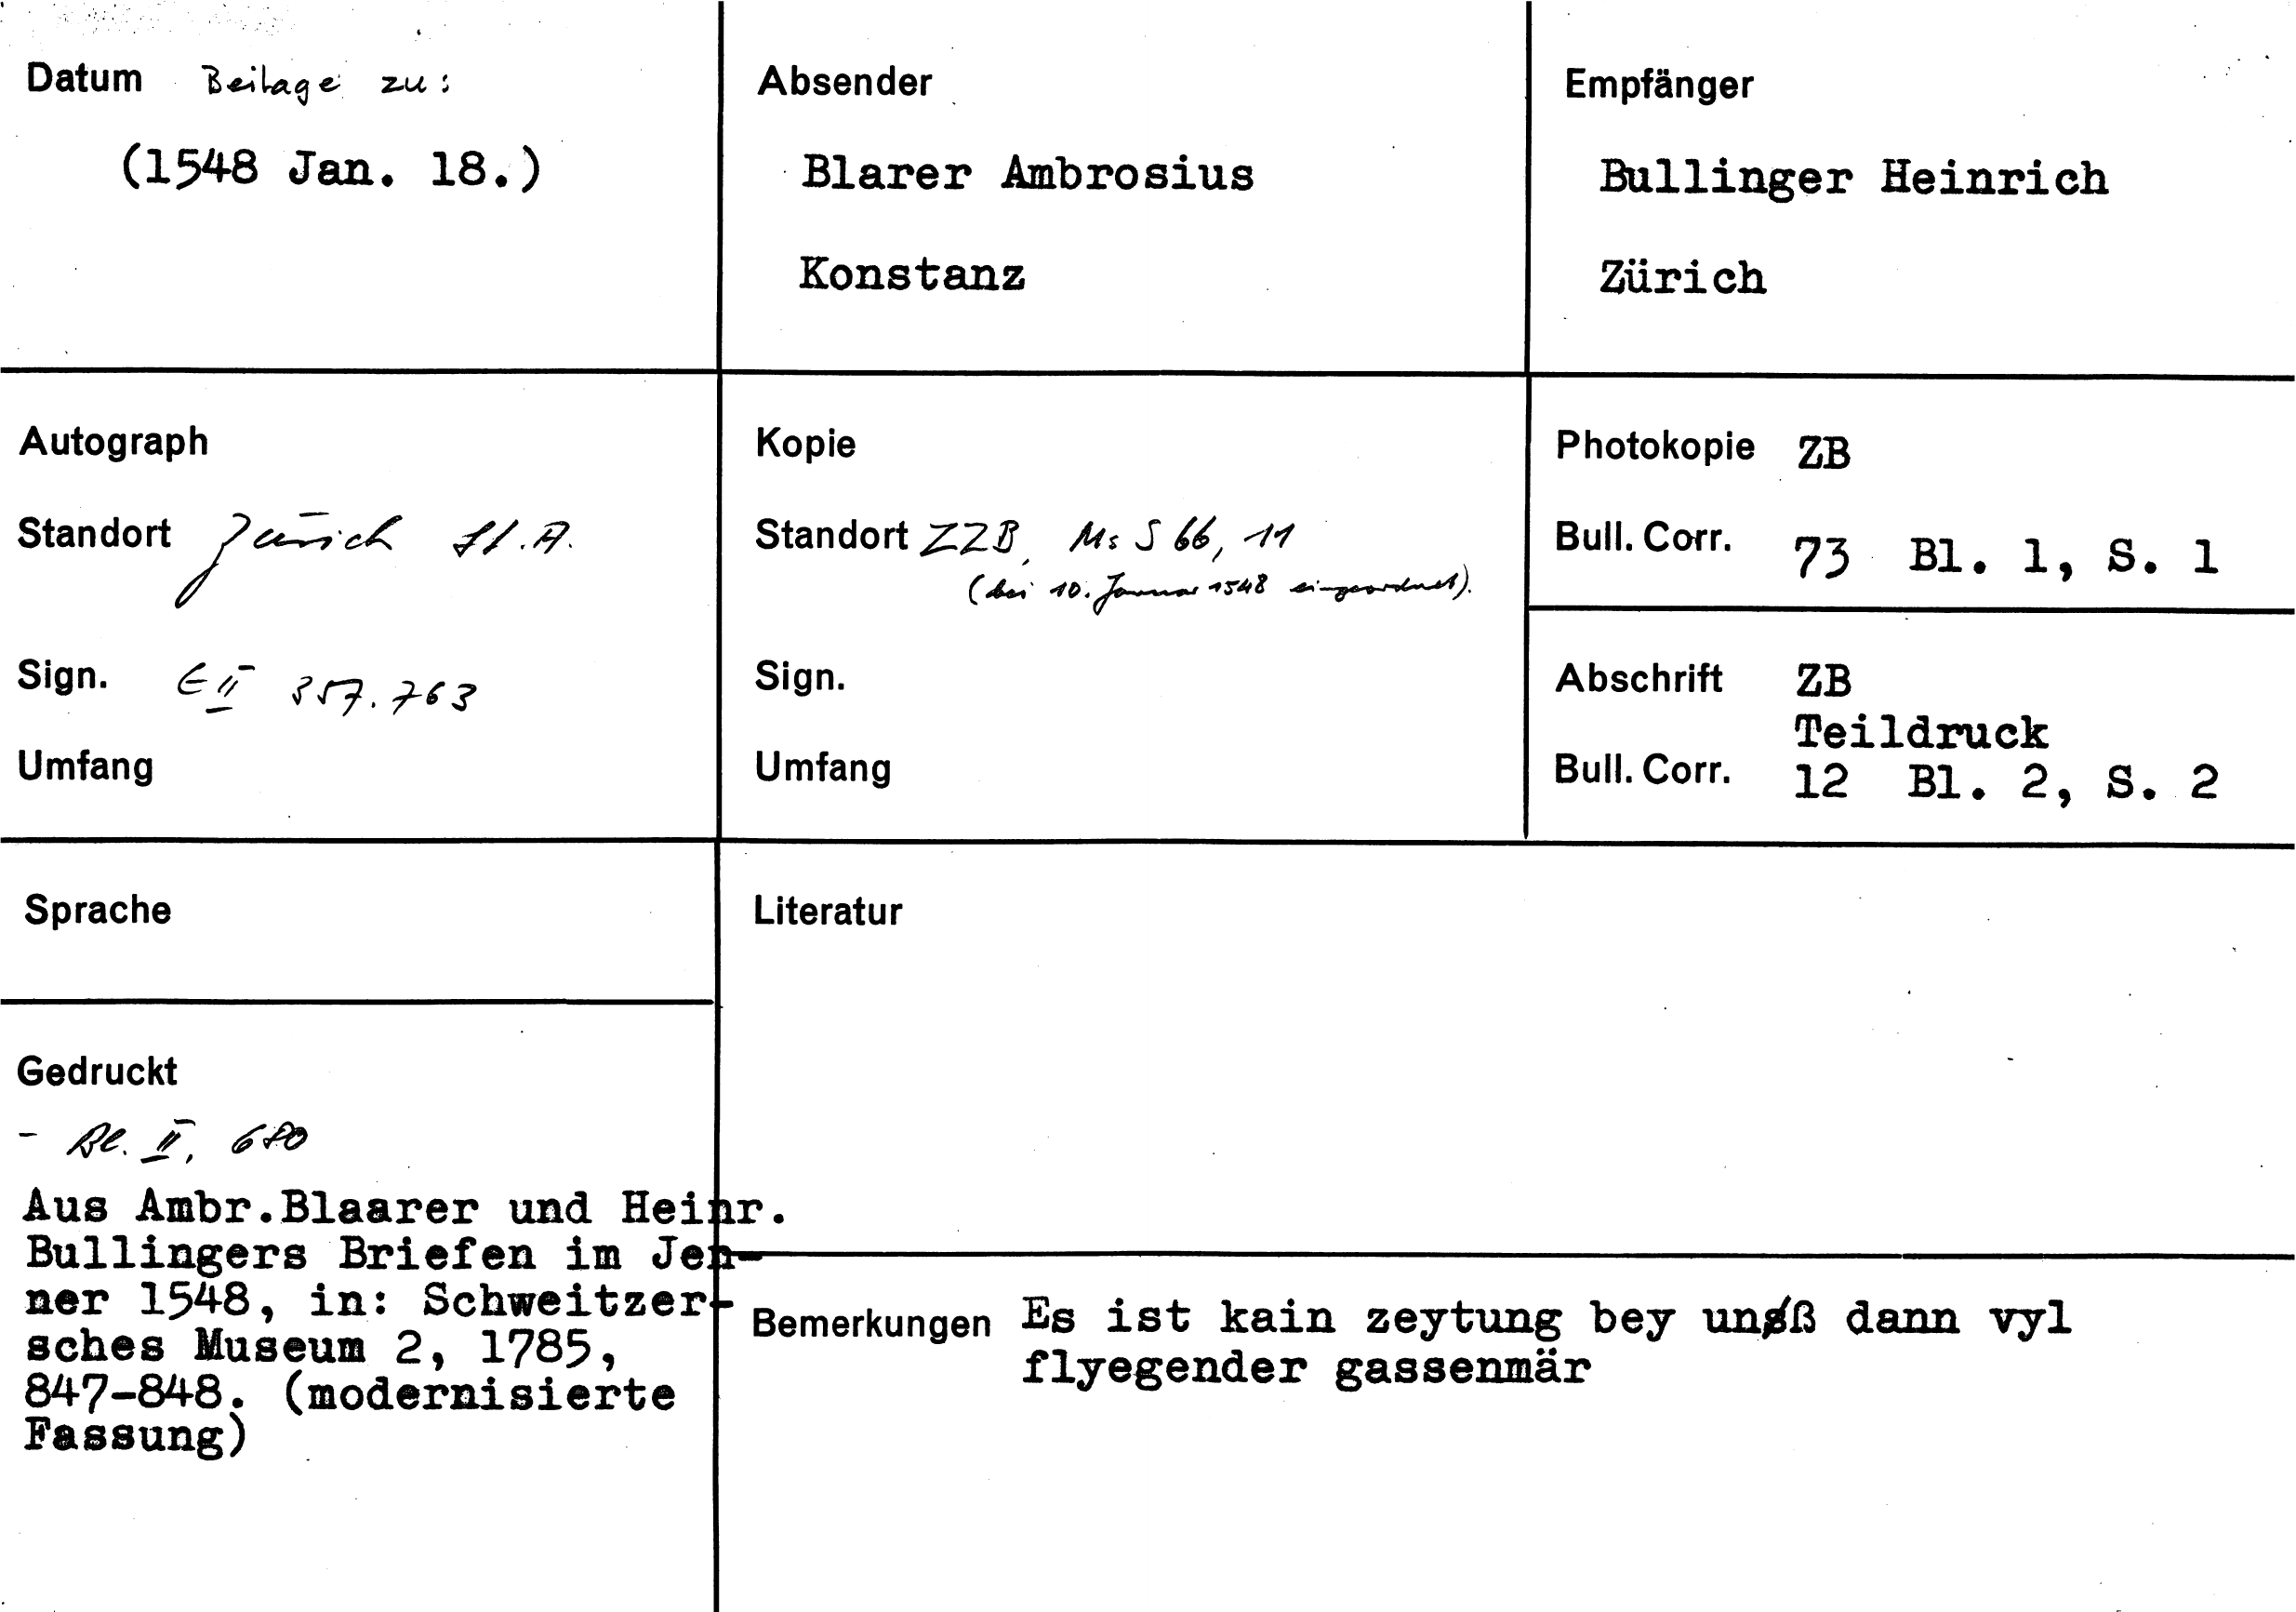 Datum Beilage zu:
(1548 Jan. 18.)
Absender
Blarer Ambrosius
Konstanz
Empfänger
Bullinger Heinrich
Zürich
Autograph
Standort Zürich St.A.
Sign. E II 357.763
Umfang
Kopie
Standort ZZB, Ms S 66, 11
(bei 10. Januar 1548 eingeordnet).
Sign.
Umfang
Photokopie ZB
Bull. Corr. 73 Bl. 1, S. 1
Abschrift ZB
Teildruck
Bull. Corr. 12 Bl. 2, S. 2
Sprache
Gedruckt
- Bl. II, 680
Aus Ambr.Blaarer und Heinr.
Bullingers Briefen im Jen-
ner 1548, in: Schweitzer-
sches Museum 2, 1785,
847-848. (modernisierte
Fassung)
Literatur
Bemerkungen Es ist kain zeytung bey unß dann vyl
flyegender gassenmär